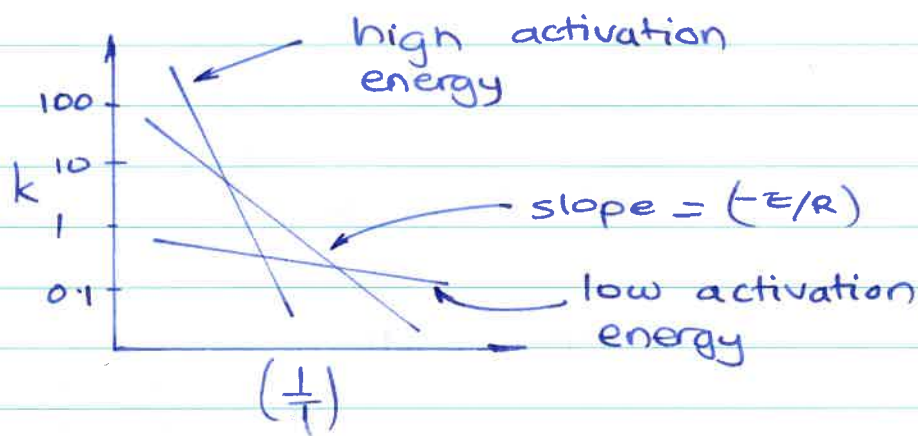 high activation
energy
100
10
k
1
slope = (-E/R)
0.1
low activation
energy
(1/T)